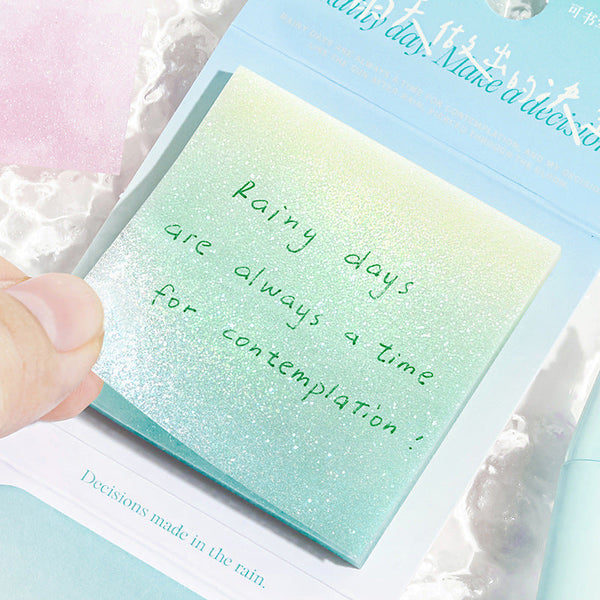 可书写
雨天做出的决
Rainy day. Make a decision
RAINY DAYS ARE ALWAYS A TIME FOR CONTEMPLATION, AND MY DECISION
Rainy days
are always a time
for contemplation!
Decisions made in the rain.